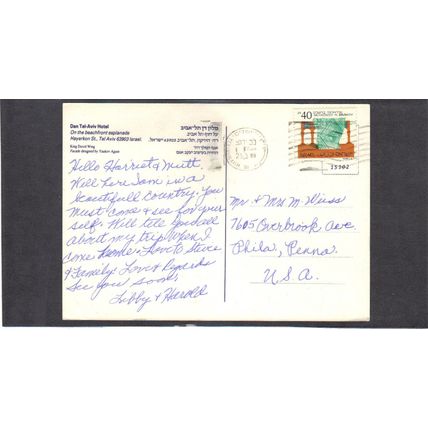 Dan Tel-Aviv Hotel
On the beachfront esplanade
Hayarkon St., Tel Aviv 63903 Israel.
King David Wing
Facade designed by Yaakov Agam
מלון דן תל-אביב
על חוף תל-אביב
Hello Harriet & Mutt.
Will here I am in a
beautifull country. You
must come & see for your
self. Will tell you all
about my trip when I
come home. Love to Steve
& Family Love & Regards
See you soon
Libby & Harold
40
ISRAEL
15902
Mr & Mrs M Weiss
7605 Overbrook Ave.
Phila, Penna.
U.S.A.